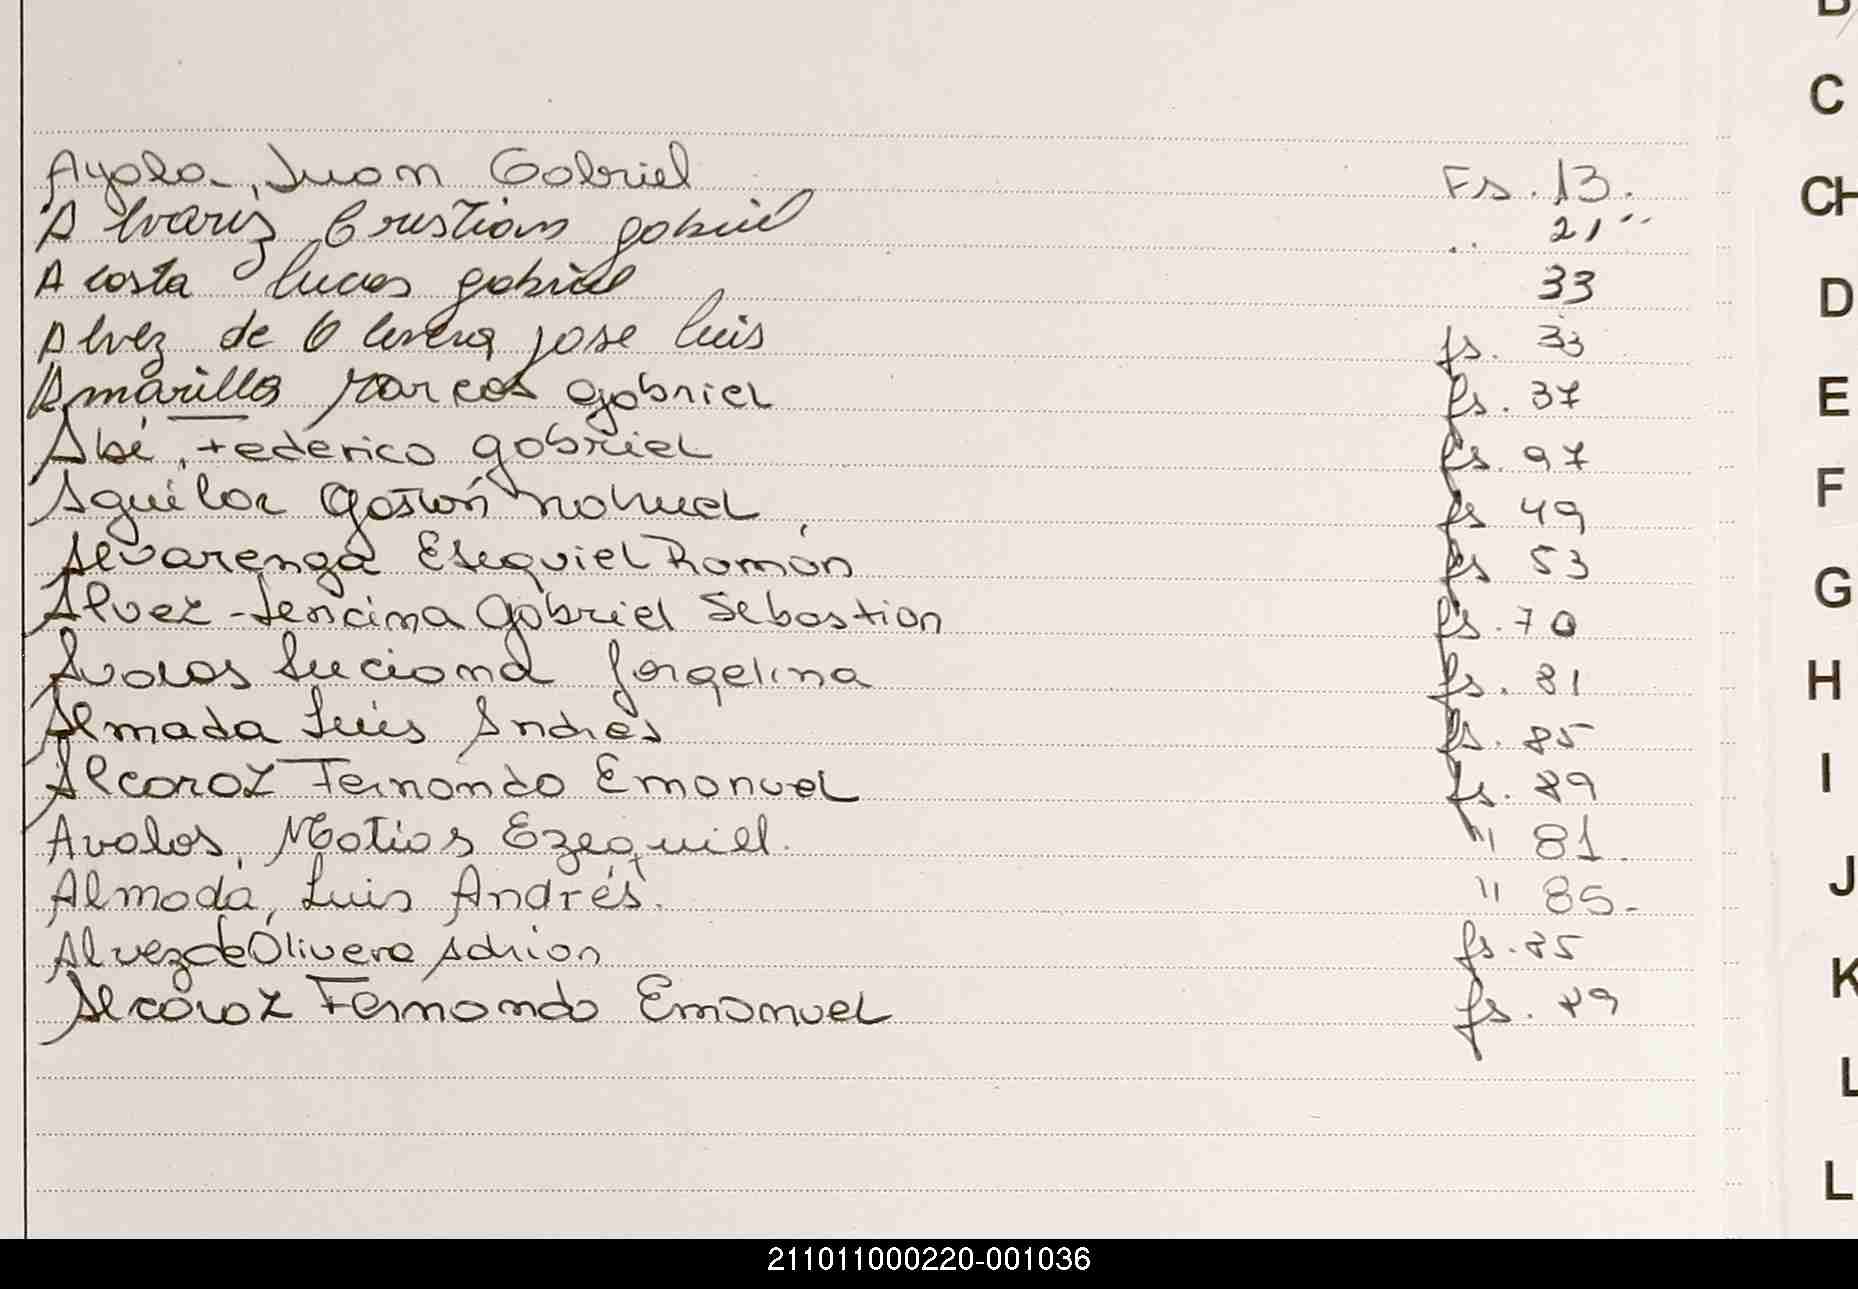 Ayala, Juan Gabriel Fs. 13.
Alvariz Cristian gabriel .. 21"
Acosta lucas gabriel 33
Alvez de Olivera jose luis fs. 33
Amarilla Marcos gabriel fs. 37
Abé, Federico gabriel fs. 97
Aguilar Gastón nahuel fs 49
Alvarenga Esequiel Román fs 53
Alvez Sencina Gabriel Sebastian fs. 70
Avalos Luciana Jorgelina fs. 81
Almada Luis Andres fs. 85
Alcaroz Fernando Emanuel fs. 89
Avalos, Matias Ezequiel. " 81.
Almada, Luis Andrés. " 85-
Alvez de Olivera Adrian fs. 85
Alcaroz Fernando Emanuel fs. 89
C
CH
D
E
F
G
H
I
J
K
L
L
211011000220-001036